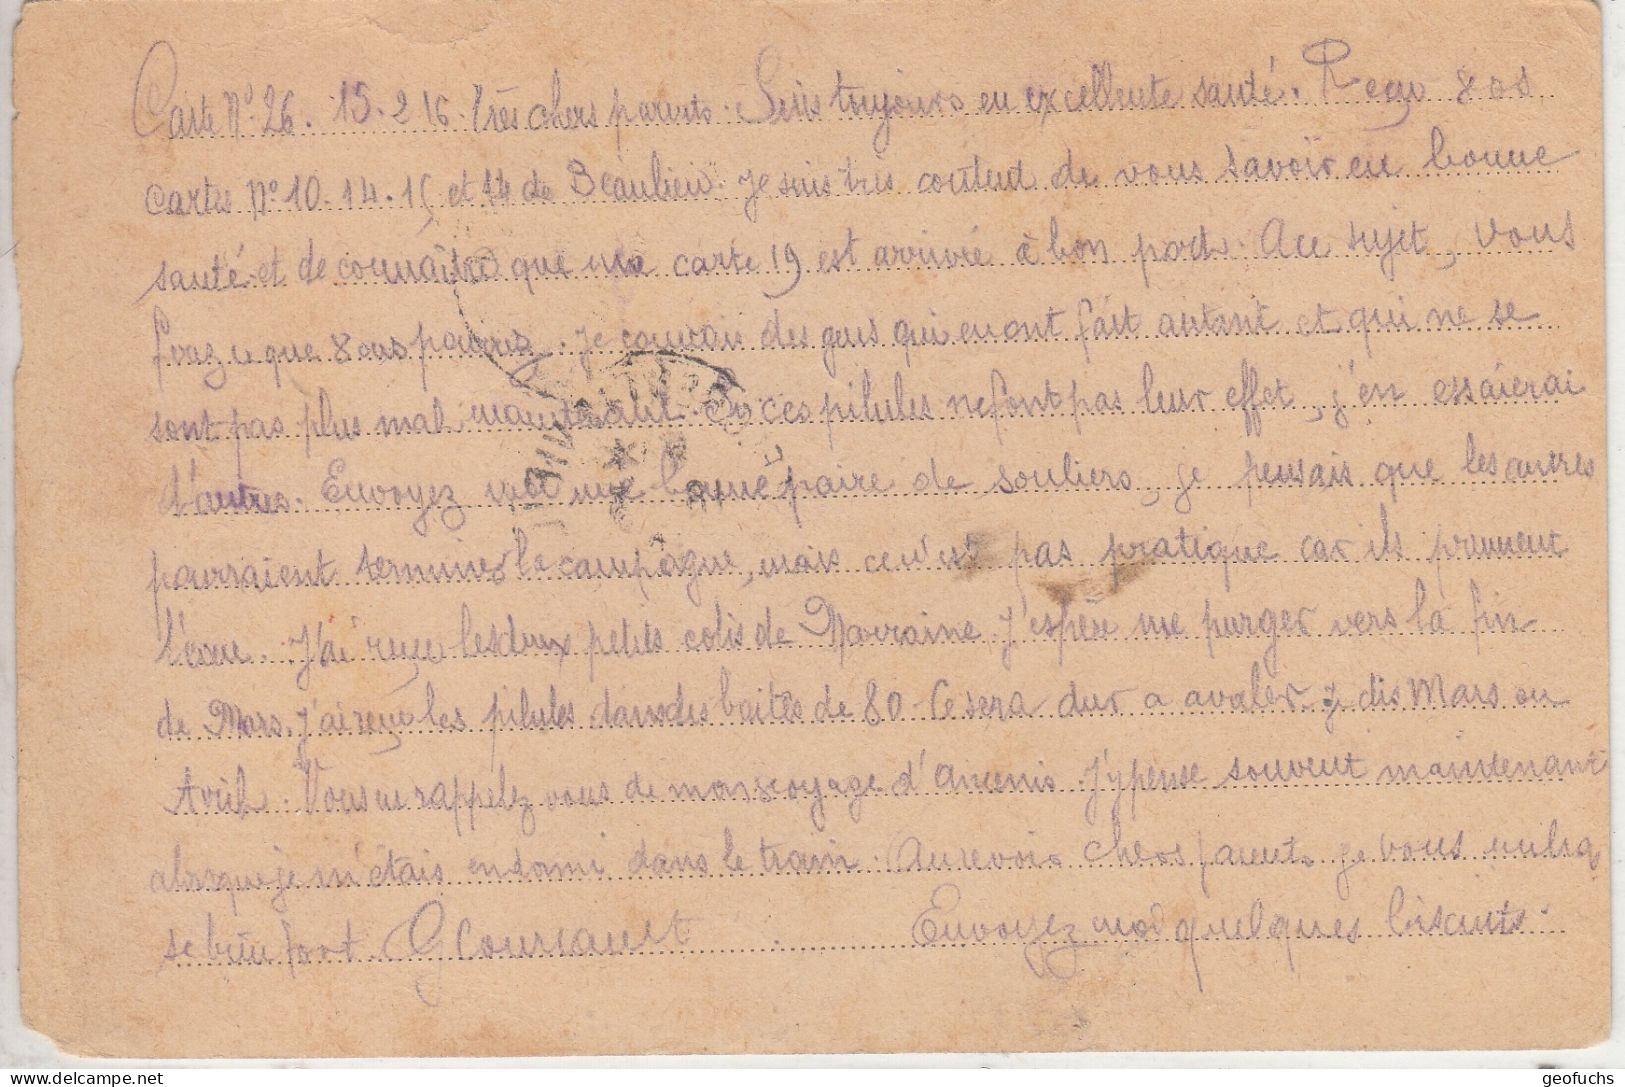 Carte N° 26. 15.2 16. Très chers parents. Suis toujours en excellente santé. Reçu vos
cartes N° 10. 14. 15 et 14 de Beaulieu. Je suis très content de vous savoir en bonne
santé et de connaître que ma carte 19 est arrivée à bon port. A ce sujet, vous
ferez ce que vous pourrez. Je connais des gens qui en ont fait autant et qui ne se
sont pas plus mal maintenant. Si ces pilules ne font pas leur effet, j'en essaierai
d'autres. Envoyez moi une bonne paire de souliers, je pensais que les autres
pourraient terminer la campagne, mais ce n'est pas pratique car ils prennent
l'eau. J'ai reçu les deux petits colis de Marraine. J'espère me purger vers la fin
de Mars. J'ai reçu les pilules dans des boîtes de 80. Ce sera dur a avaler. Je dis Mars ou
Avril. Vous en rappelez vous de mon voyage d'Ancenis. J'y pense souvent maintenant
alors que je m'étais endormi dans le train. Au revoir chers parents je vous embras
se bien fort. G Courcault Envoyez moi quelques biscuits.
geofuchs